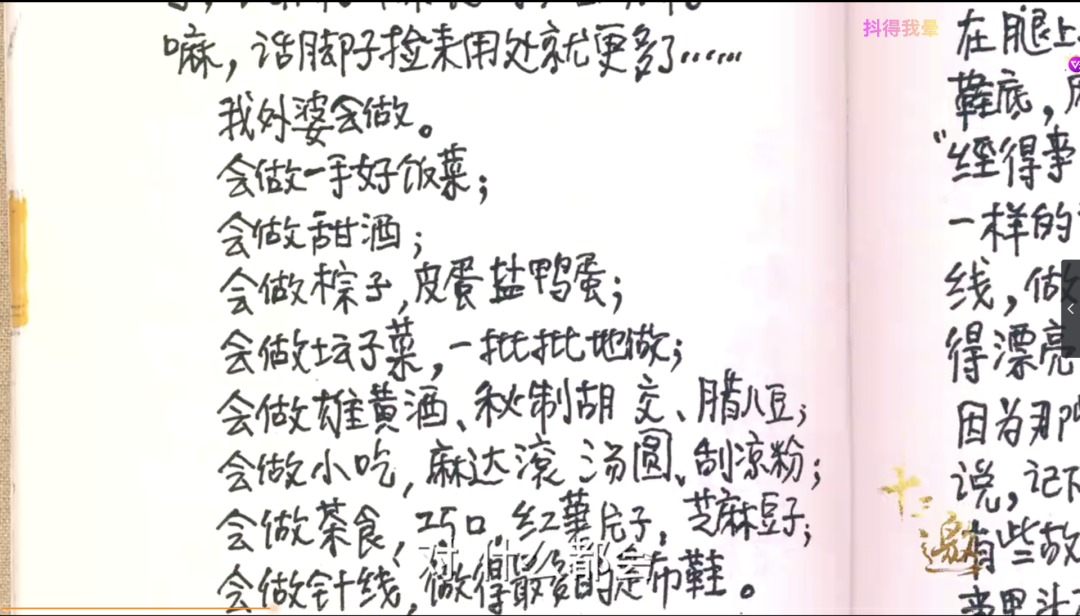 嘛，诰脚子捡来用处就更多了……
我外婆会做。
会做一手好饭菜；
会做甜酒；
会做粽子，皮蛋盐鸭蛋；
会做坛子菜，一批批地做；
会做雄黄酒、秘制胡 交、腊八豆；
会做小吃，麻达滚 汤圆、刮凉粉；
会做茶食，巧口，红薯片子，芝麻豆子；
会做针线，做得最多的是布鞋。
对 什么都会
抖得我晕
在腿上
鞋底，
“经得事
一样的
线，做
得漂亮
因为那
说，记
有些故
十三邀